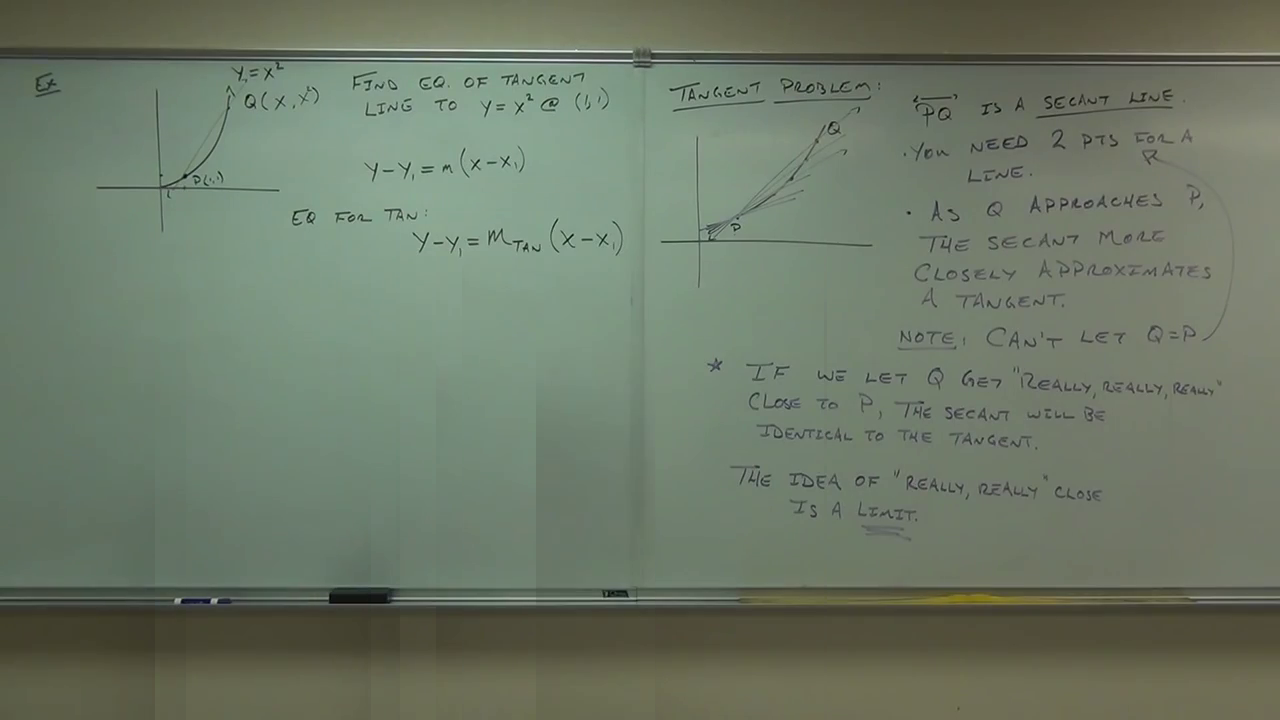 Ex
Y=X²
Q(X,X²)
P(1,1)
1
FIND EQ. OF TANGENT
LINE TO Y=X² @ (1,1)
Y-Y₁=m(X-X₁)
EQ FOR TAN:
Y-Y₁=m_TAN(X-X₁)
TANGENT PROBLEM:
Q
P
"PQ" IS A SECANT LINE.
·YOU NEED 2 PTS FOR A
LINE.
· AS Q APPROACHES P,
THE SECANT MORE
CLOSELY APPROXIMATES
A TANGENT.
NOTE: CAN'T LET Q=P
* IF WE LET Q GET "REALLY, REALLY, REALLY"
CLOSE TO P, THE SECANT WILL BE
IDENTICAL TO THE TANGENT.
THE IDEA OF "REALLY, REALLY" CLOSE
IS A LIMIT.